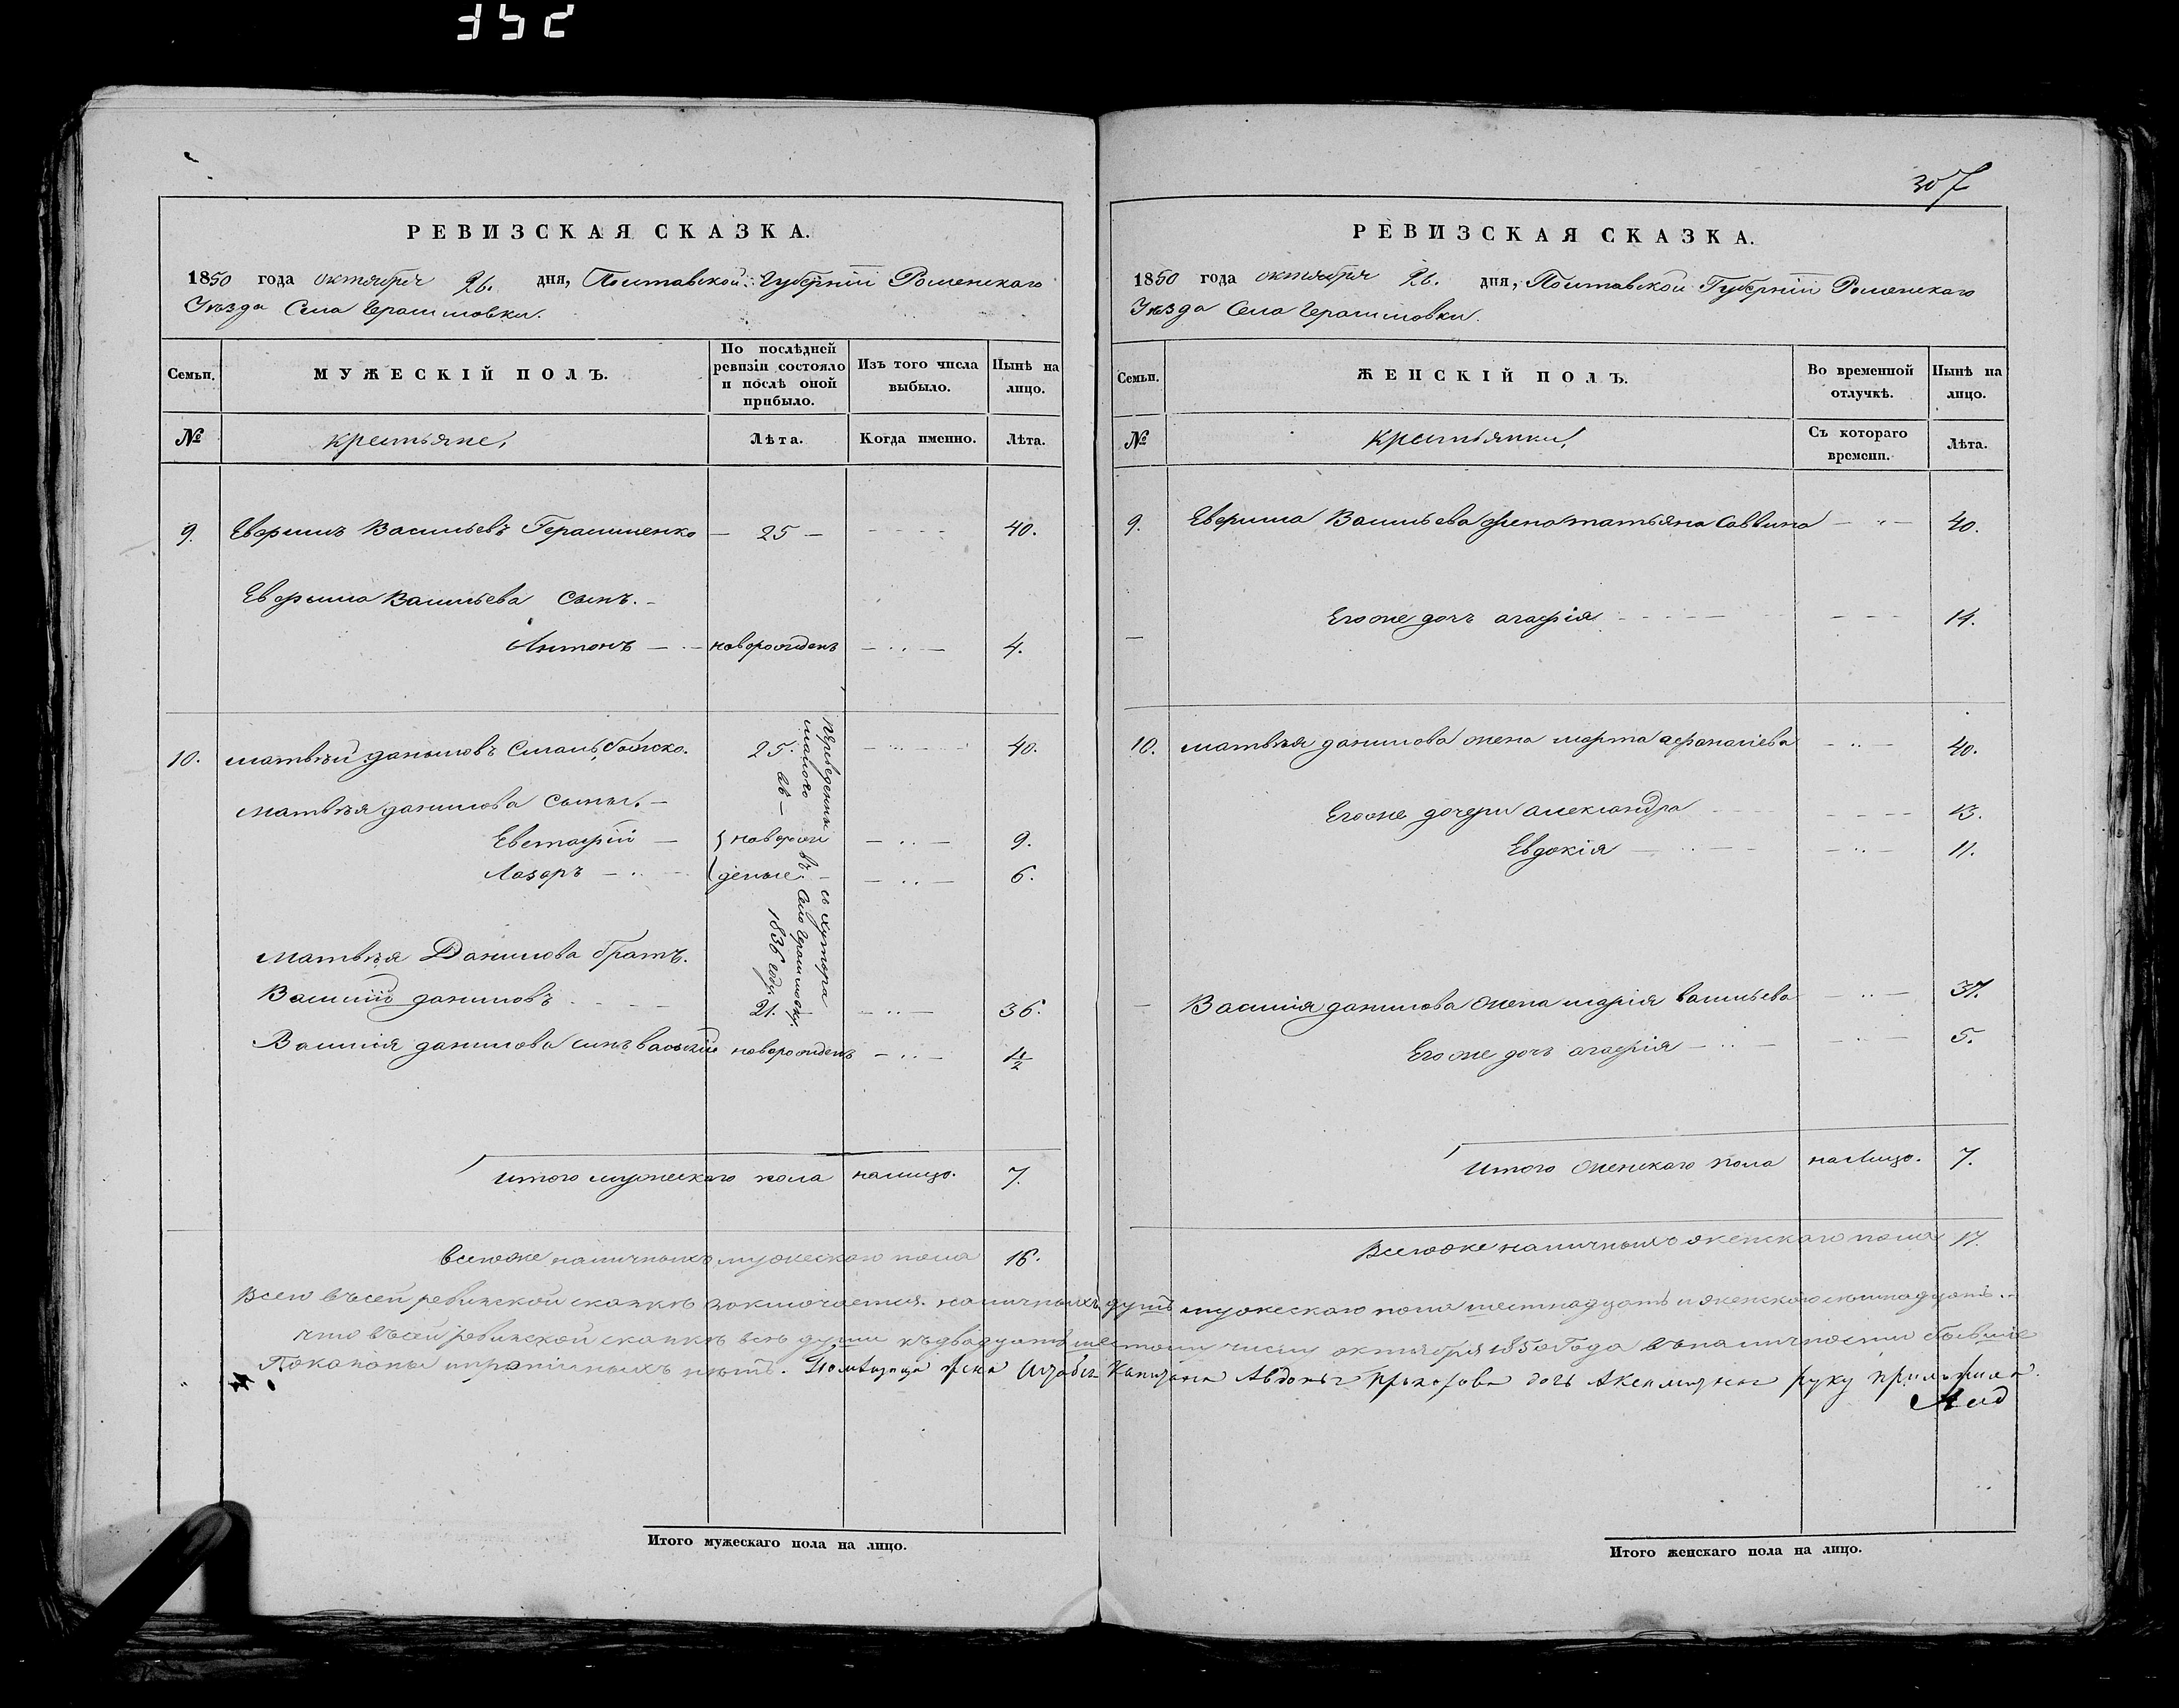 352
РЕВИЗСКАЯ СКАЗКА.
1850 года октября 26. дня, Полтавской Губерніи Роменскаго
Уѣзда Села Герасимовки.
Семьи.
МУЖЕСКІЙ ПОЛЪ.
По послѣдней ревизіи состояло и послѣ оной прибыло.
Изъ того числа выбыло.
Нынѣ на лицо.
№
крестьяне,
Лѣта.
Когда именно.
Лѣта.
9. Евфимъ Васильевъ Герасименко — 25 — 40.
Евфима Васильева Сынъ.
Антонъ — новорожденъ — 4.
10. матвѣй даниловъ 25. — 40.
матвѣя данилова Сыны. —
Евстафій — новорож — 9.
Лазоръ — деные — 6.
матвѣя Данилова братъ.
Василій даниловъ 21. — 36.
Василія данилова сынъ новорожденъ — 1/2
переведенны съ хутора
въ Село Герасимовку,
1836 году
Итого мужескаго пола налицо. 7.
всегоже наличныхъ мужескаго пола 16.
307
РЕВИЗСКАЯ СКАЗКА.
1850 года октября 26. дня, Полтавской Губерніи Роменскаго
Уѣзда Села Герасимовки.
Семьи.
ЖЕНСКІЙ ПОЛЪ.
Во временной отлучкѣ.
Нынѣ на лицо.
№
крестьянки,
Съ котораго времени.
Лѣта.
9. Евфима Васильева жена татьяна Саввина — 40.
Егоже дочь агафія — 14.
10. матвѣя данилова жена марта афанасіева — 40.
Егоже дочери александра — 13.
Евдокія — 11.
Василія данилова жена марія васильева — 37.
Егоже дочь агафія — 5.
Итого женскаго пола налицо. 7.
Всегоже наличныхъ женскаго пола 17.
Всего въсей ревизской сказкѣ заключается наличныхъ душъ мужескаго пола шестнадцать и женскаго семнадцать.
что въсей ревизской сказкѣ всѣ души къдвадцать шестому числу октября 1850 Года въналичности бывшіе
Показаны ипрописныхъ нѣтъ. Помѣщица жена Штабсъ Капитана Авдотья дочь руку приложила.
Итого мужескаго пола на лицо.
Итого женскаго пола на лицо.